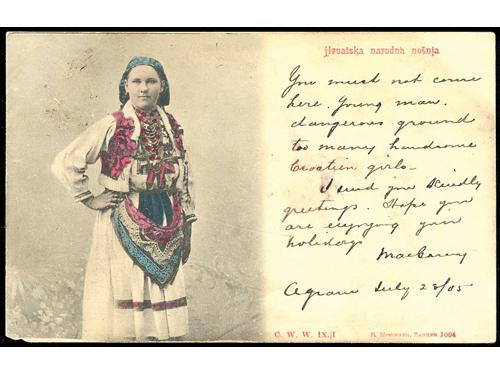 Hrvatska narodna nošnja
You must not come
here. Young man.
dangerous ground
too many handsome
Croatien girls_
I send you Kindly
greetings. Hope you
are enjoying your
holidays
Agram July 28/05
C. W. W. IX./I
Zagreb 1004